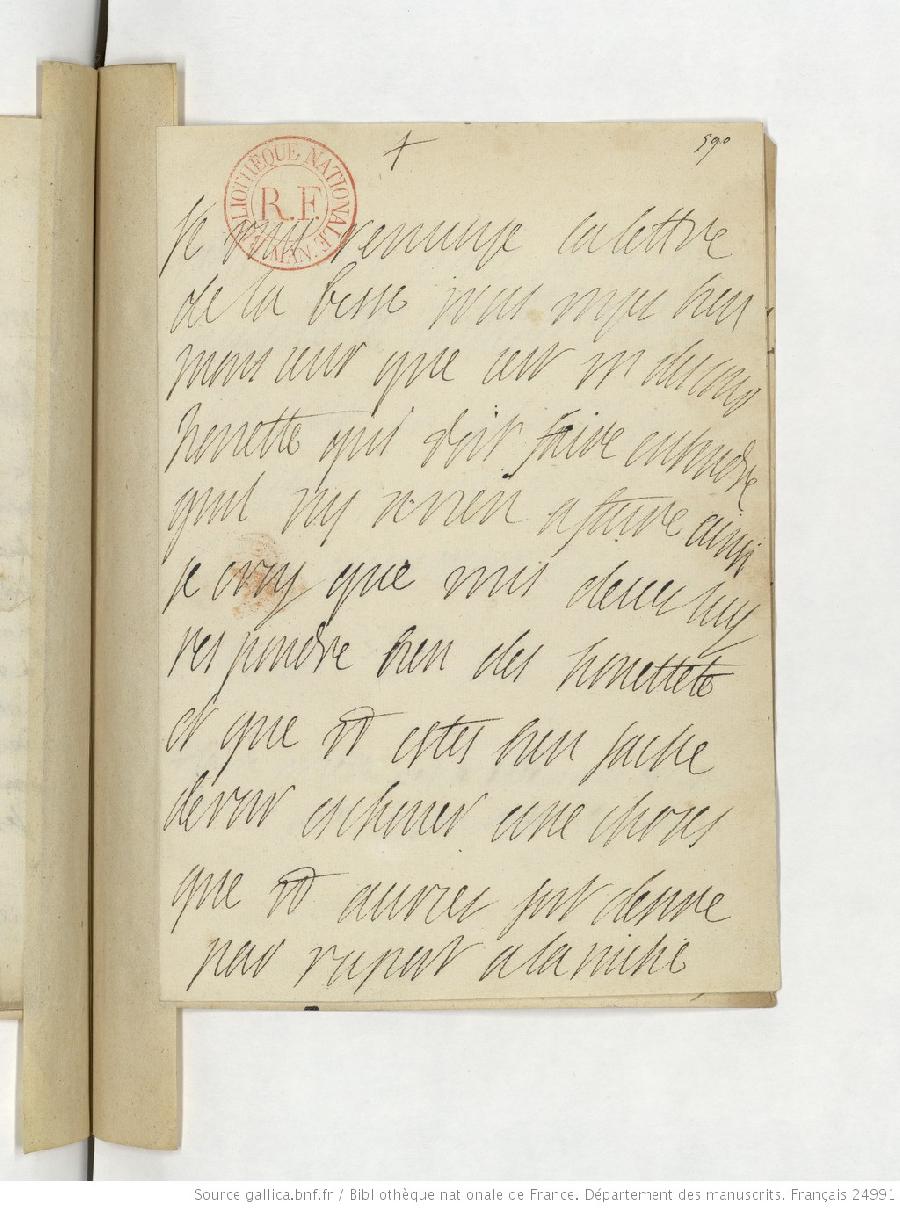 590
BIBLIOTHÈQUE NATIONALE MANUSCRITS
R.F.
Je vous renvoye la lettre
de la besse vous voyes bien
monsieur que cest mr
honnette qui doit faire entendre
quil ny a rien a faire ainsi
je croy que vous deves luy
respondre bien des honettete
et que vous estes bien fache
de voir eschouer une chose
que vous auries fort desire
par raport a lamitie
Source gallica.bnf.fr / Bibliothèque nationale de France. Département des manuscrits. Français 24991